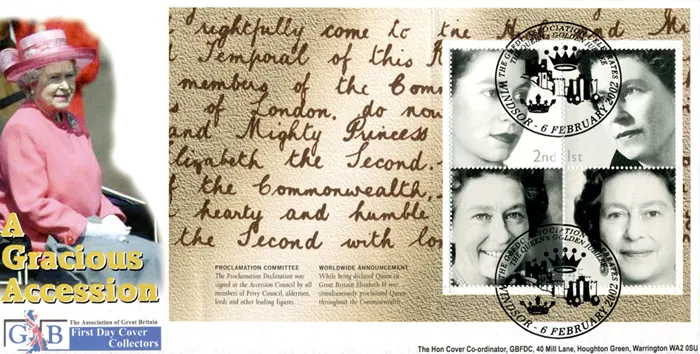 rightly come to the H and Mi
Temporal of this R
members of the Com
s of London. do now
and Mighty Princess
lizabeth the Second.
f the Commonwealth,
hearty and humble
the Second with lo
PROCLAMATION COMMITTEE
The Proclamation Declaration was
signed at the Accession Council by all
members of Privy Council, aldermen,
lords and other leading figures.
WORLDWIDE ANNOUNCEMENT
While being declared Queen in
Great Britain Elizabeth II was
simultaneously proclaimed Queen
throughout the Commonwealth.
2nd
1st
THE GBFDC ASSOCIATION CELEBRATES
THE QUEEN'S GOLDEN JUBILEE
WINDSOR - 6 FEBRUARY 2002
THE GBFDC ASSOCIATION CELEBRATES
THE QUEEN'S GOLDEN JUBILEE
WINDSOR - 6 FEBRUARY 2002
A
Gracious
Accession
GB
The Association of Great Britain
First Day Cover
Collectors
The Hon Cover Co-ordinator, GBFDC, 40 Mill Lane, Houghton Green, Warrington WA2 0SU